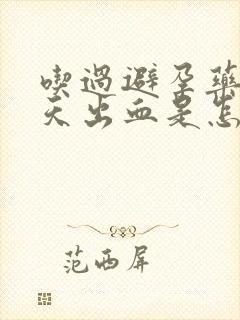 喫過避孕藥
天出血是怎
范西屏